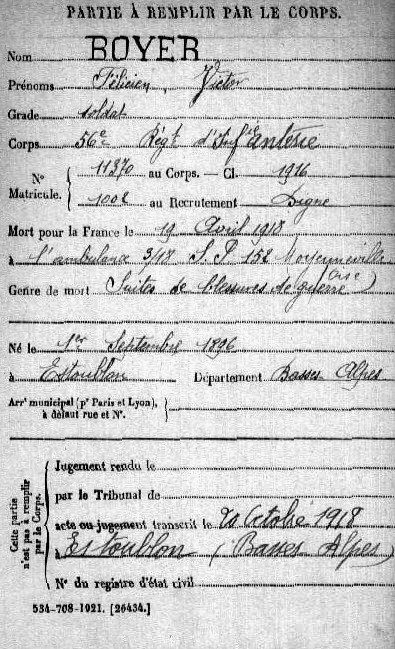 PARTIE À REMPLIR PAR LE CORPS.
Nom BOYER
Prénoms Félicien, Victor
Grade soldat
Corps 56e Régt d'Infanterie
N° Matricule. { 11370 au Corps. — Cl. 1916
1002 au Recrutement Digne
Mort pour la France le 19 Avril 1918
à l'ambulance 3/18 S.P. 152 Moyenneville
Genre de mort Suites de blessures de guerre Oise)
Né le 1er Septembre 1896
à Estoublon Département Basses Alpes
Arrt municipal (pr Paris et Lyon), à défaut rue et N°. {
Cette partie n'est pas à remplir par le Corps. {
Jugement rendu le
par le Tribunal de
acte ou jugement transcrit le 20 Octobre 1918
à Estoublon (Basses Alpes)
N° du registre d'état civil
534-708-1921. [26434.]